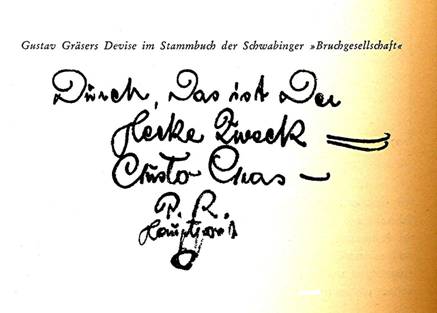 Gustav Gräsers Devise im Stammbuch der Schwabinger »Bruchgesellschaft«
Durch, Das ist Der
Zweck
Gusto Gras